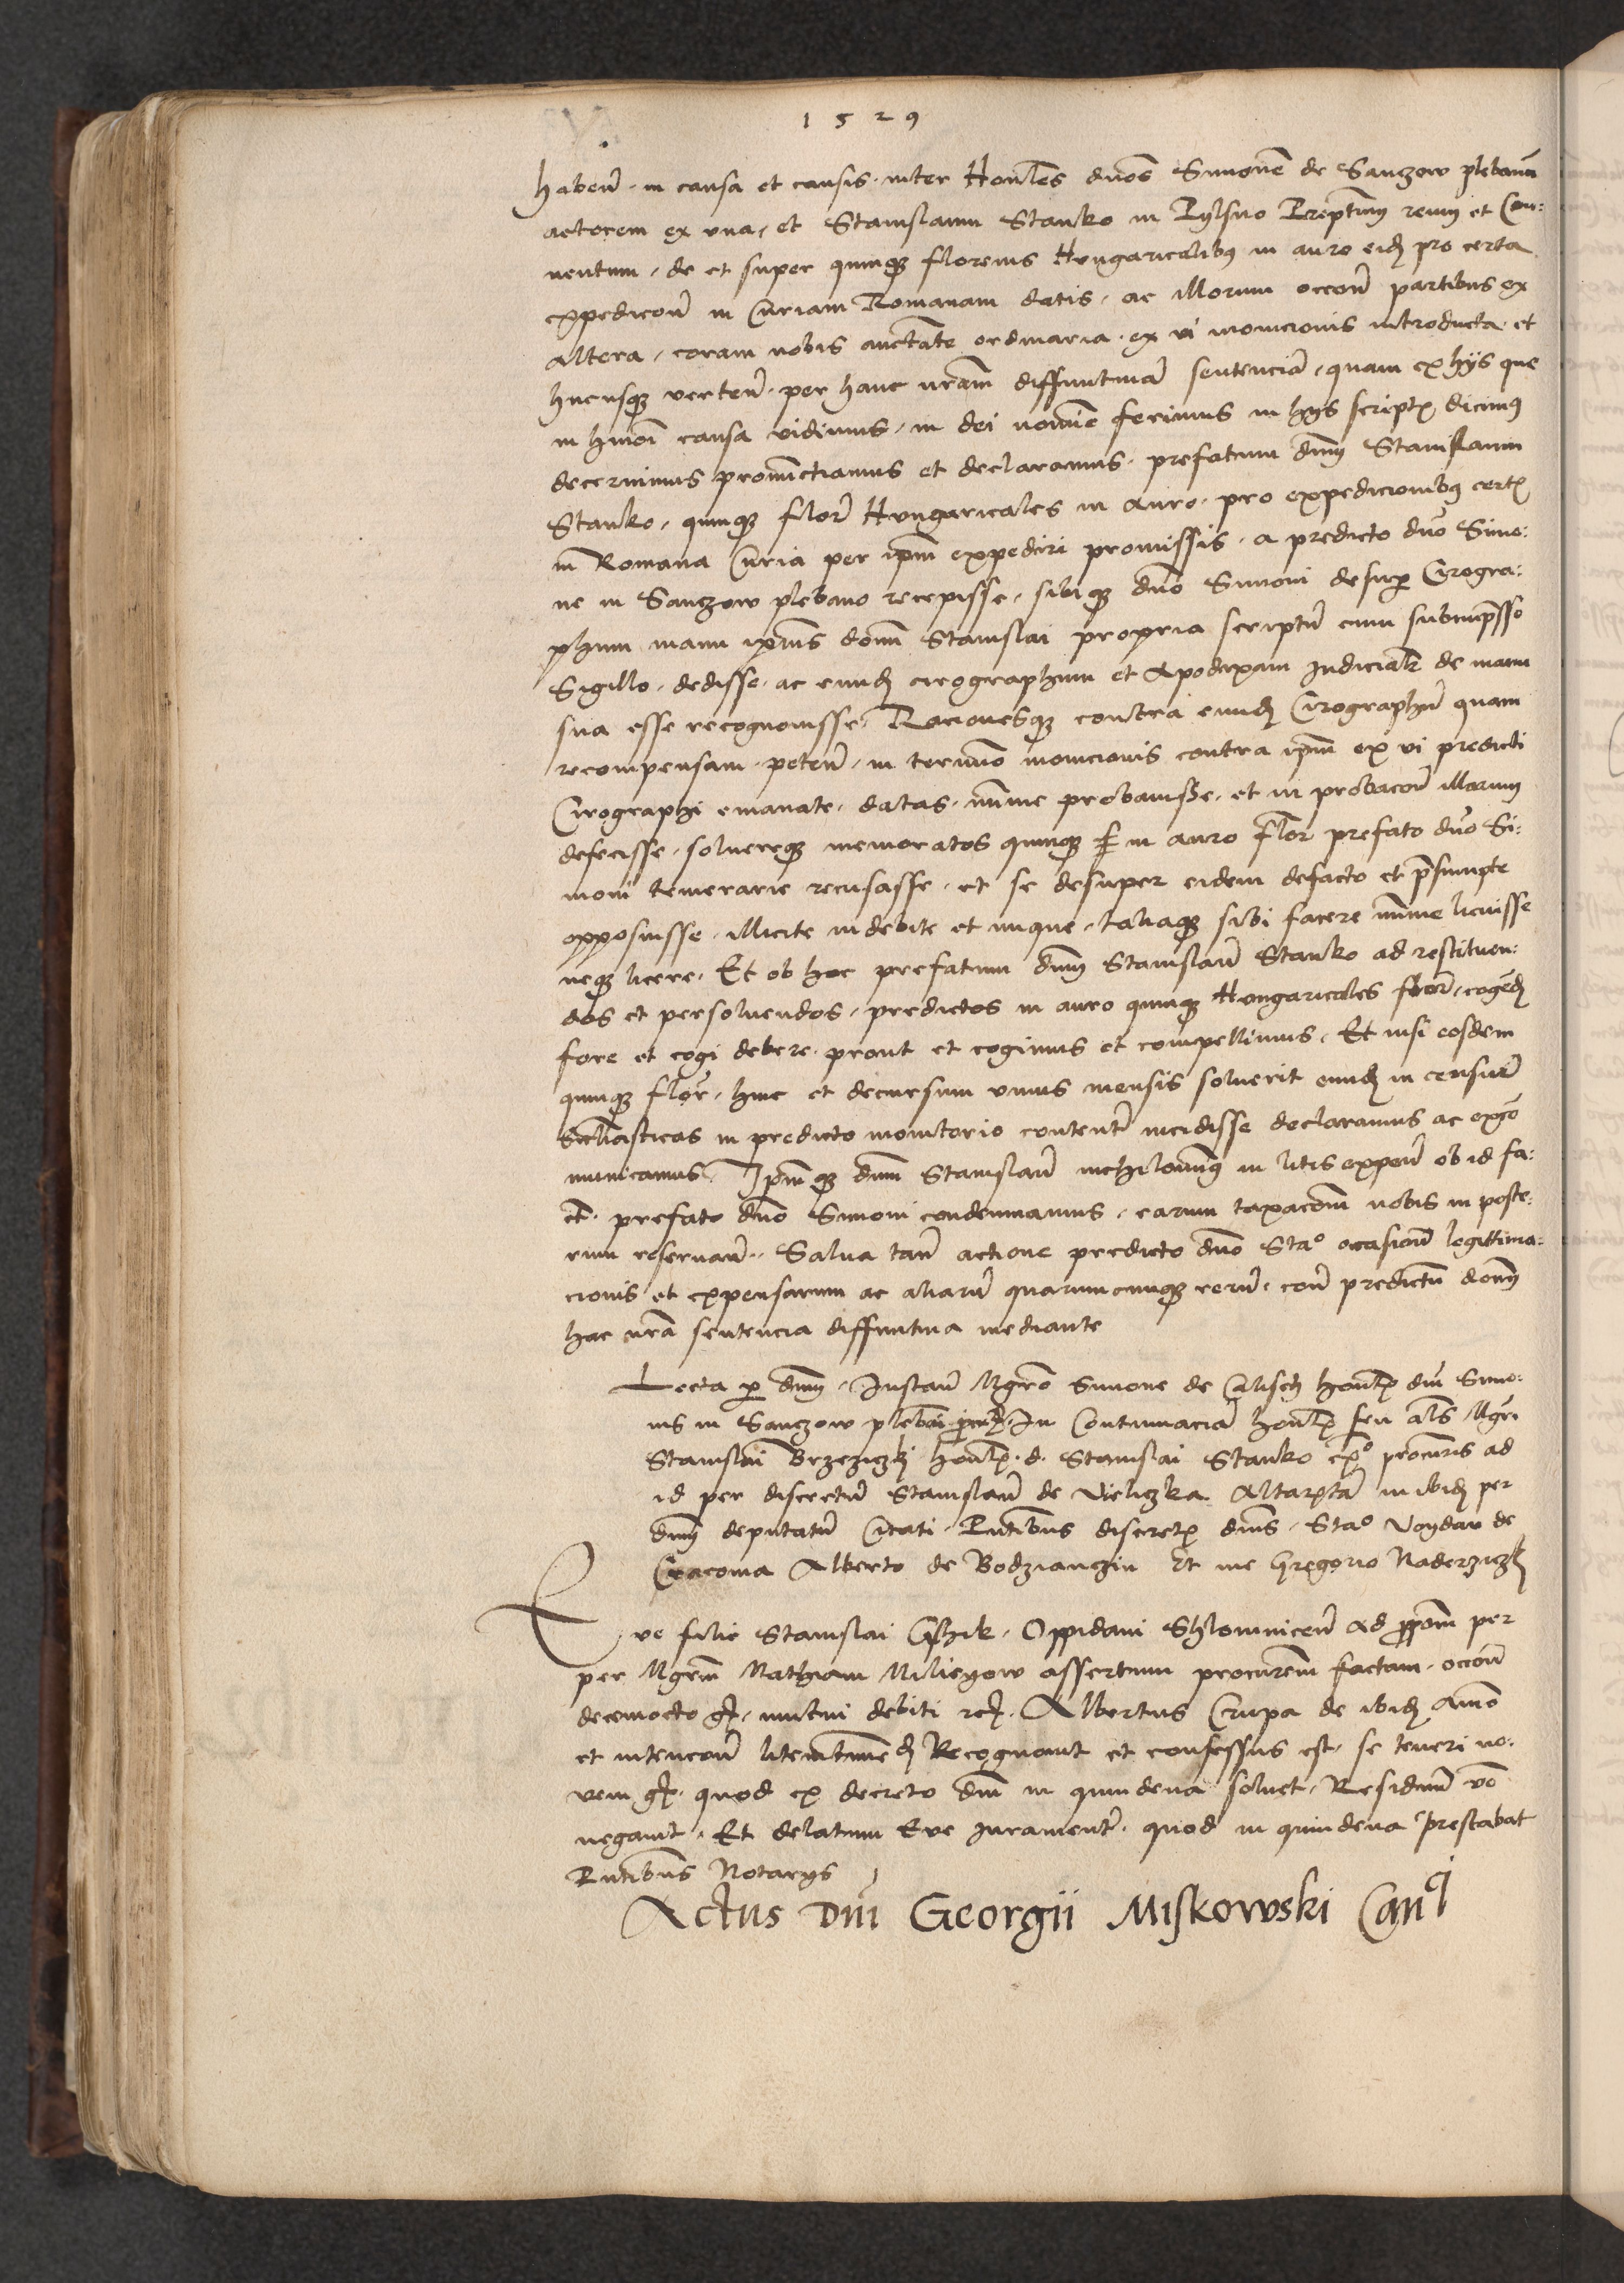 1529
haben̄. in causa et causis. inter Hon̄les dn̄os Simonē de Sanczow plebanū
actorem ex una, et Stanislaum Stanko in Pylsno Preptūm reum et Con:
uentum, de et super quinq₃ florenis Hungaricalibus in auro eid₃ pro certa
expedicōn̄ in Curiam Romanam datis, ac illorum occōn̄ partibus ex
altera, coram nobis auctāte ordinaria. ex vi monicionis introducta et
hucusq₃ verten̄. per hanc nrām diffinitiuā sentenciā, quam ex hijs que
in hmōi causa vidimus, in dei noīne ferimus in hijs scriptꝭ dicimus
decernimus pronunctiamus et declaramus. prefatum dn̄m Stanislaum
Stanko, quinq₃ flor̄ Hungaricales in auro, pro expedicionibus certꝭ
in Romana Curia per ipm̄ expediri promissis, a predicto dn̄o Simo:
ne in Sanczow plebano recepisse, sibiq₃ dn̄o Simoni desup Cirogra:
phum manu ipsius domi Stanislai propria scriptū cum subimp̄sso
Sigillo, dedisse. ac eund₃ cirographum et Apodixam Judicialr̄ de manu
sua esse recognouisse, Racionesq₃ contra eund₃ Cirographū quam
recompensam. peten̄, in termino monicionis contra ipm̄ ex vi predicti
Cirographi emanate, datas. minime probauisse, et in probacōn̄ illarum
defecisse, soluereq₃ memoratos quinq₃ in auro flor̄ prefato dn̄o Si:
moni temerarie recusasse, et se desuper eidem defacto et p̄sumpte
opposuisse, illicite indebite et inique, taliaq₃ sibi facere minime licuisse
neq₃ licere. Et ob hoc prefatum dn̄m Stanislaū Stanko ad restituen:
dos et persoluendos, predictos in auro quinq₃ Hungaricales flor̄, cogēd₃
fore et cogi debere. prout et cogimus et compellimus, Et nisi eosdem
quinq₃ flor̄, hinc et decursum unius mensis soluerit eund₃ in censur̄
Eccliāsticas in predicto monitorio content̄ incidisse declaramus ac exco
municamus. Ipm̄q₃ dn̄m Stanislaū nichilominus in litis expen̄ ob id fa:
ct̄. prefato dn̄o Simoni condemnamus, earum taxacōnem nobis in poste:
rum reseruan̄. Salua tan̄ actione predicto dn̄o Stao occasiōn̄ legittima:
cionis et expensarum ac aliarū quarumcunq₃ rerū. con̄ predictū domm̄
hac nrā sentencia diffinitiua mediante
Lecta p dn̄m, Instan̄ Mgrō Simone de Calisch honlꝭ dni Simo:
nis in Sanczow plebāi procurē. In Contumaciā honlꝭ seu als̄ Mgri
Stanislai Brzeziczki honlꝭ. d. Stanislai Stanko expo procuris ad
id per discretū Stanislaū de Vieliczka Altaristā in ibid₃ per
dn̄m deputatū Citati. Pn̄tibus discretꝭ dn̄is. Stao Voydav de
Cracouia Alberto de Bodzianczin Et me Gregorio Naderziczki
Eve filie Stanislai Cizik, Oppidani Shlomnicen̄ ad propōm per
per Mgrm̄ Mathiam Milieyow assertum procurēm factam. occōn̄
decemocto gꝭ, mutui debiti rcꝭ. Albertus Crupa de ibid₃ Amō
et intencōn̄ litemtmed₃ Recognouit et confessus est, se teneri no:
vem gꝭ. quod ex decreto dn̄i in quindena soluet. Residuū vō
negauit. Et delatum Eve iurament̄. quod in quindena prestabat
Pn̄tibus Notarijs
Actus Dn̄i Georgii Miskowski Canci